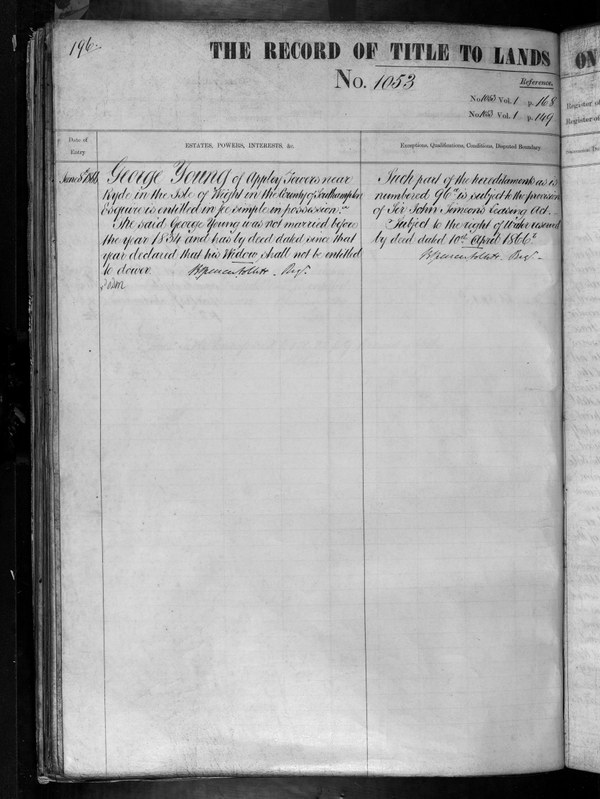 196
THE RECORD OF TITLE TO LANDS
No. 1053
Reference.
No. 1053 Vol. 1 p. 168
No. 1053 Vol. 1 p. 149
Date of
Entry
ESTATES, POWERS, INTERESTS, &c.
Exceptions, Qualifications, Conditions, Disputed Boundary
George Young of Appley Towers near
Ryde in the Isle of Wight in the County of Southampton
Esquire is entitled in fee simple in possession.
The said George Young was not married before
the year 1834 and has by deed dated since that
year declared that his Widow shall not be entitled
to dower.
Regr.
Such part of the hereditaments as is
numbered 96a is subject to the provisions
of Sir John Simeons Leasing Act.
Subject to the right of Water reserved
by deed dated 10th April 1866.
Regr.
ON
Register of
Register of